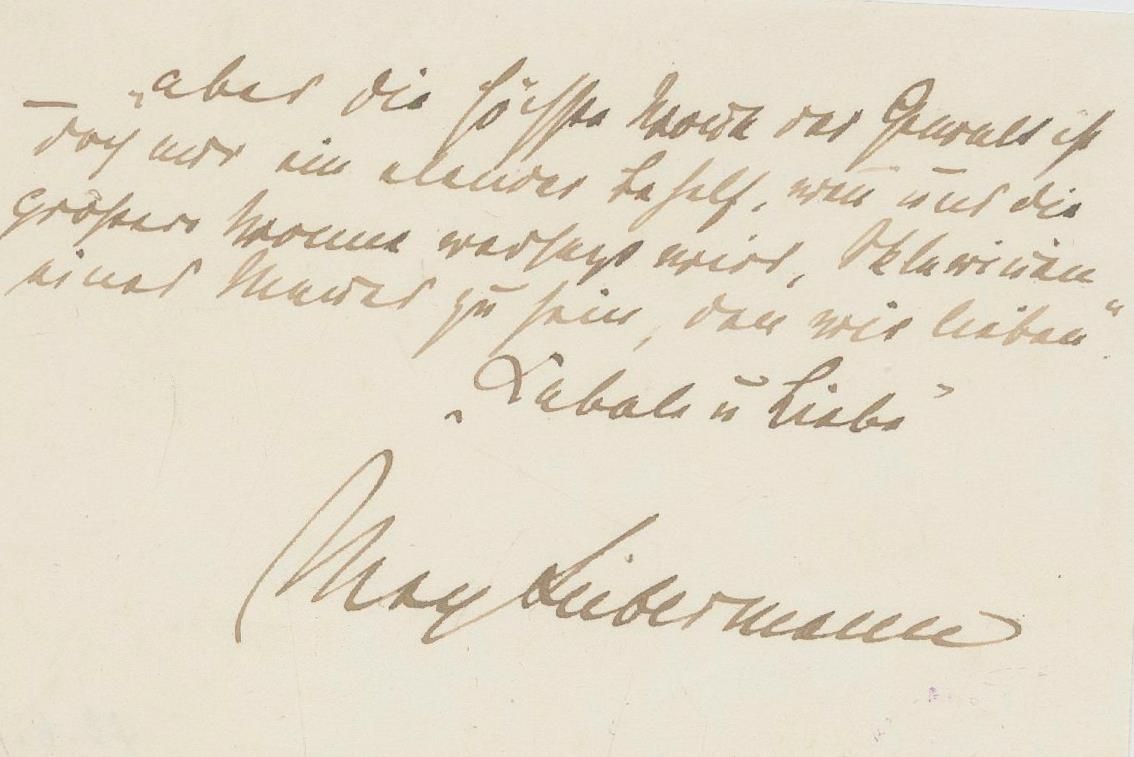 — „aber die höchste Wonne der Gewalt ist
doch nur ein elender Behelf, wen̄ uns die
grössere Wonne versagt wird, Sklavinnen
eines Mannes zu sein, den wir lieben“.
„Kabale u Liebe“
Max Liebermann